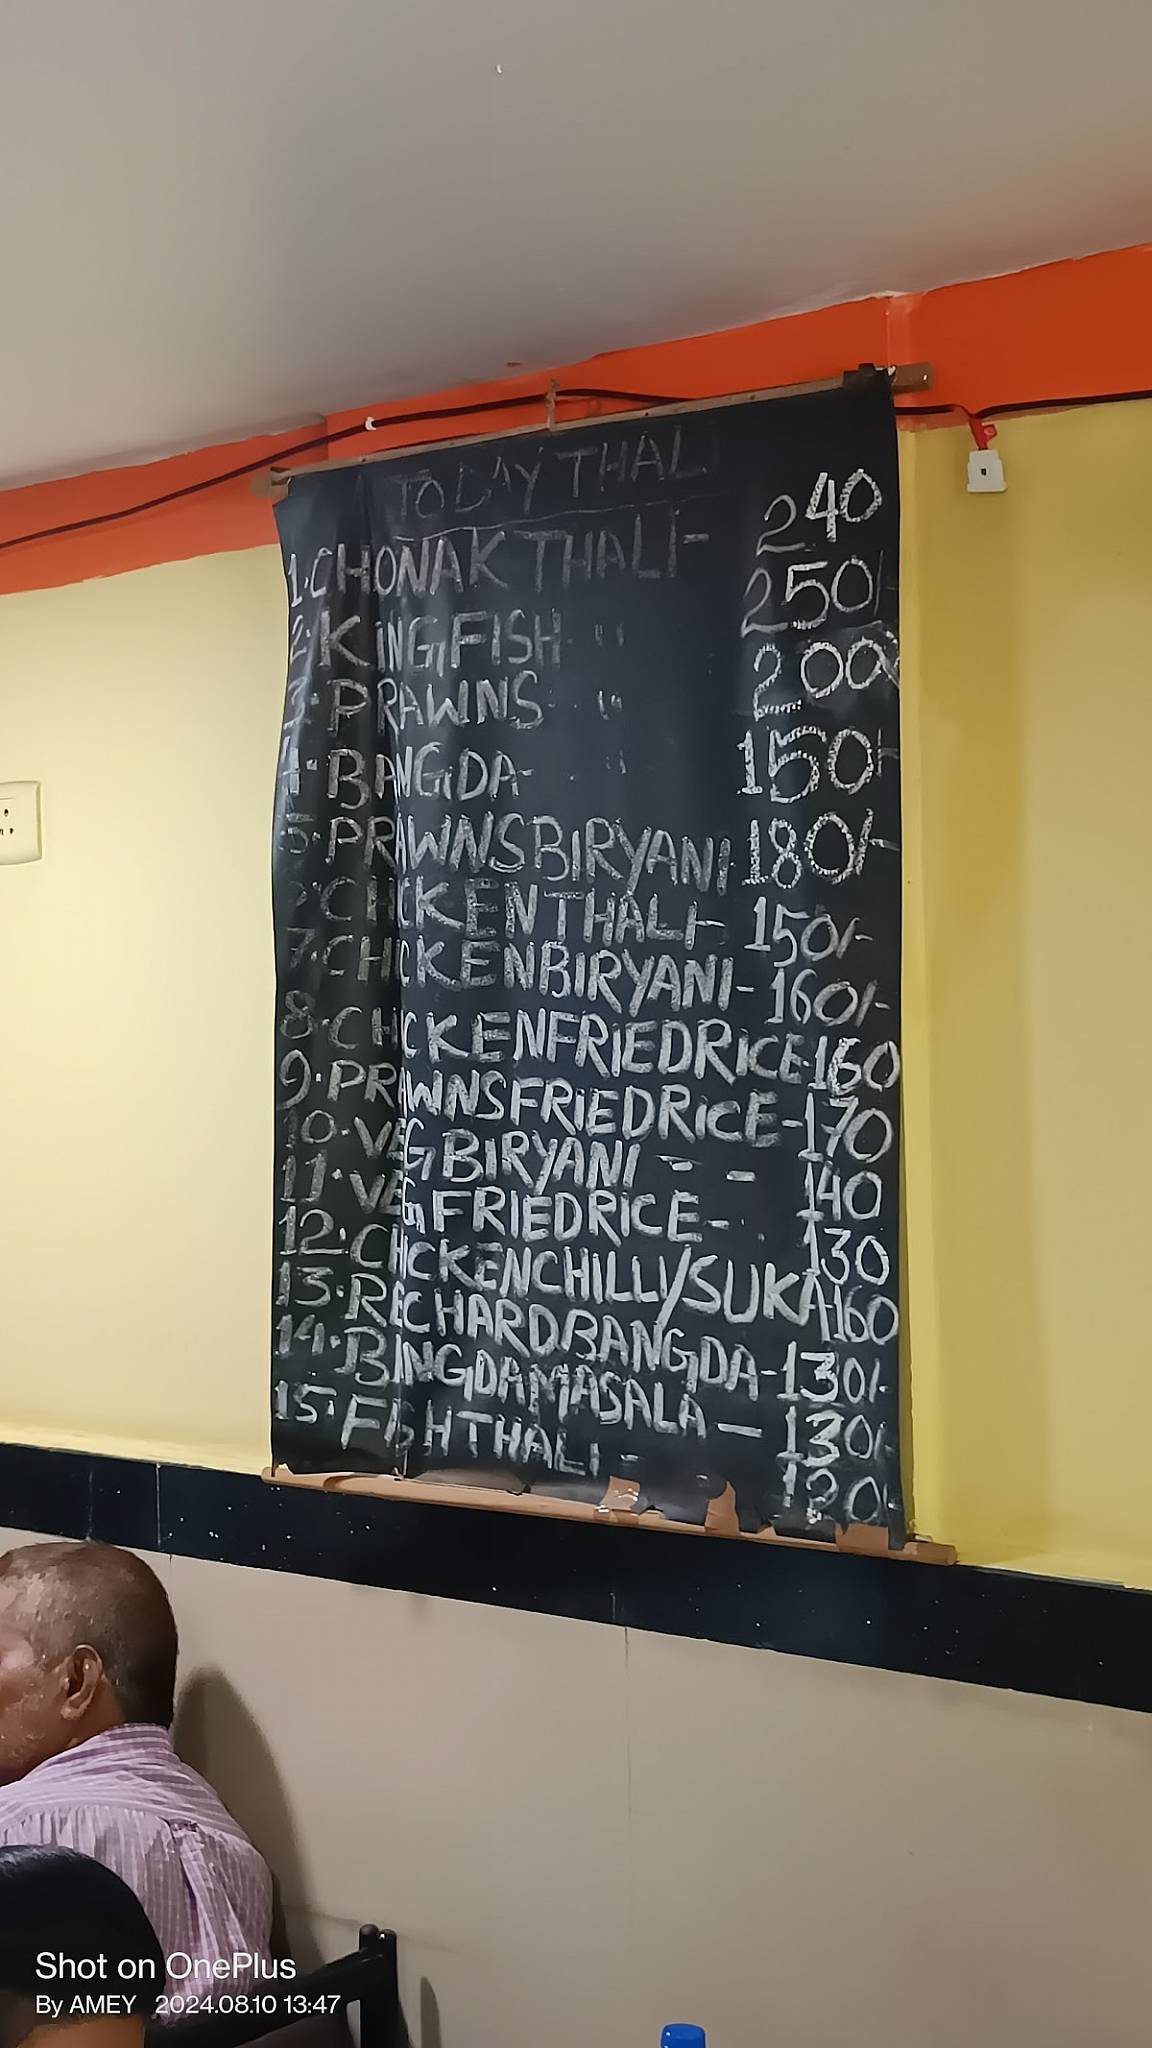 TODAY THALI
1. CHONAK THALI - 240
2. KINGFISH " 250/-
3. PRAWNS " 200
4. BANGDA - " 150/-
5. PRAWNS BIRYANI 180/-
6. CHICKEN THALI - 150/-
7. CHICKEN BIRYANI - 160/-
8. CHICKEN FRIEDRICE - 160
9. PRAWNS FRIEDRICE - 170
10. VEG BIRYANI - - 140
11. VEG FRIEDRICE - 130
12. CHICKEN CHILLY/SUKA 160
13. RECHARD BANGDA - 130/-
14. BANGDA MASALA - 130/-
15. FISH THALI - 120/-
Shot on OnePlus
By AMEY 2024.08.10 13:47